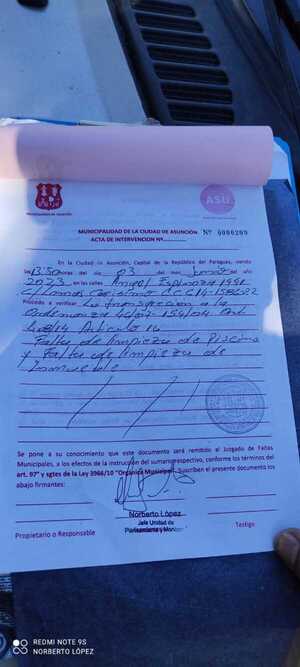 ASU
Municipalidad de Asunción
MUNICIPALIDAD DE LA CIUDAD DE ASUNCIÓN Nº 0006209
ACTA DE INTERVENCION Nº
En la Ciudad de Asunción, Capital de la República del Paraguay, siendo
las 13:50 horas del día 03 del mes del año
2023 en las calles Angel Espinoza 1491
Procedo a verificar La transgresión a la
Ordenanza
Articulo 14
Falta de limpieza de Piscina
y Falta de limpieza de
Inmueble
Se pone a su conocimiento que este documento será remitido al Juzgado de Faltas
Municipales, a los efectos de la instrucción del sumario respectivo, conforme los términos del
art. 97° y sgtes de la Ley 3966/10 "Orgánica Municipal". Suscriben el presente documento los
abajo firmantes:
Norberto López
Jefe Unidad de
Propietario o Responsable
Testigo
REDMI NOTE 9S
NORBERTO LÓPEZ